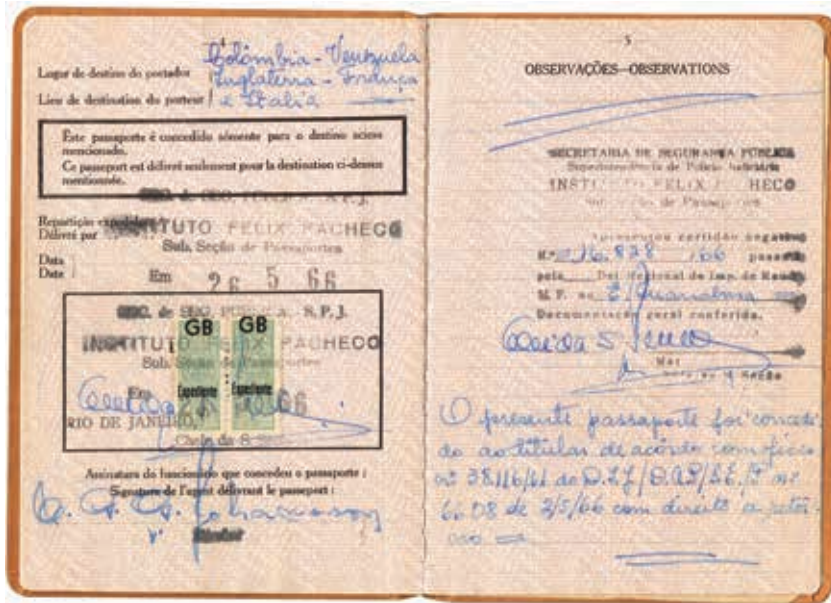 4
Lugar de destino do portador
Lieu de destination du porteur
Colômbia - Venezuela
Inglaterra - França
e Italia
Este passaporte é concedido sòmente para o destino acima
mencionado.
Ce passeport est délivré seulement pour la destination ci-dessus
mentionnée.
SEC. de SEG. PÚBLICA S.P.J.
Repartição
Délivré par
INSTITUTO FELIX PACHECO
Sub. Seção de Passaportes
Data
Date
Em 26 5 66
SEC. de SEG. PÚBLICA S.P.J.
GB GB
INSTITUTO PACHECO
Sub. Seção de Passaportes
Em Expediente Expediente 66
RIO DE JANEIRO,
Chefe da S.
Assinatura do funcionário que concedeu o passaporte :
Signature de l'agent délivrant le passeport :
5
OBSERVAÇÕES—OBSERVATIONS
SECRETARIA DE SEGURANÇA PÚBLICA
Superintendência de Polícia Judiciária
INSTITUTO FELIX PACHECO
de Passaportes
Apresentou certidão negativa
N.º 16.828 /66
pela Del Regional do Imp. de Renda
M. F. E. Guanabara
Documentação geral conferida.
Seção
O presente passaporte foi concedi
do ao titular de acôrdo com ofício
nº
6608 de 2/5/66 com direito a retor